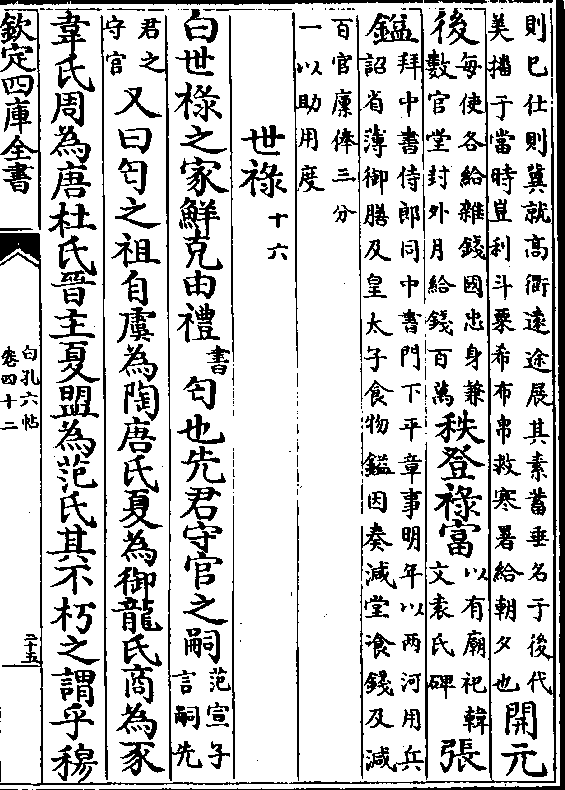 則巳仕則冀就高衢遠途展其素蓄垂名于後代
美播于當時豈利斗粟希布帛救寒暑給朝夕也
開元
後
每使各給雜錢國忠身兼
數官堂封外月給錢百萬
秩登祿富
以有廟祀韓
文袁氏碑
張
鎰
拜中書侍郎同中書門下平章事明年以兩河用兵
詔省薄御膳及皇太子食物鎰因奏減堂飡錢及減
百官廩俸三分
一以助用度
世祿十六
白世祿之家鮮克由禮書匄也先君守官之嗣
范宣子
言嗣先
君之
守官
又曰匄之祖自虞為陶唐氏夏為御龍氏商為豕
韋氏周為唐杜氏晉主夏盟為范氏其不朽之謂乎穆
欽定四庫全書
白孔六帖
卷四十二
二十五